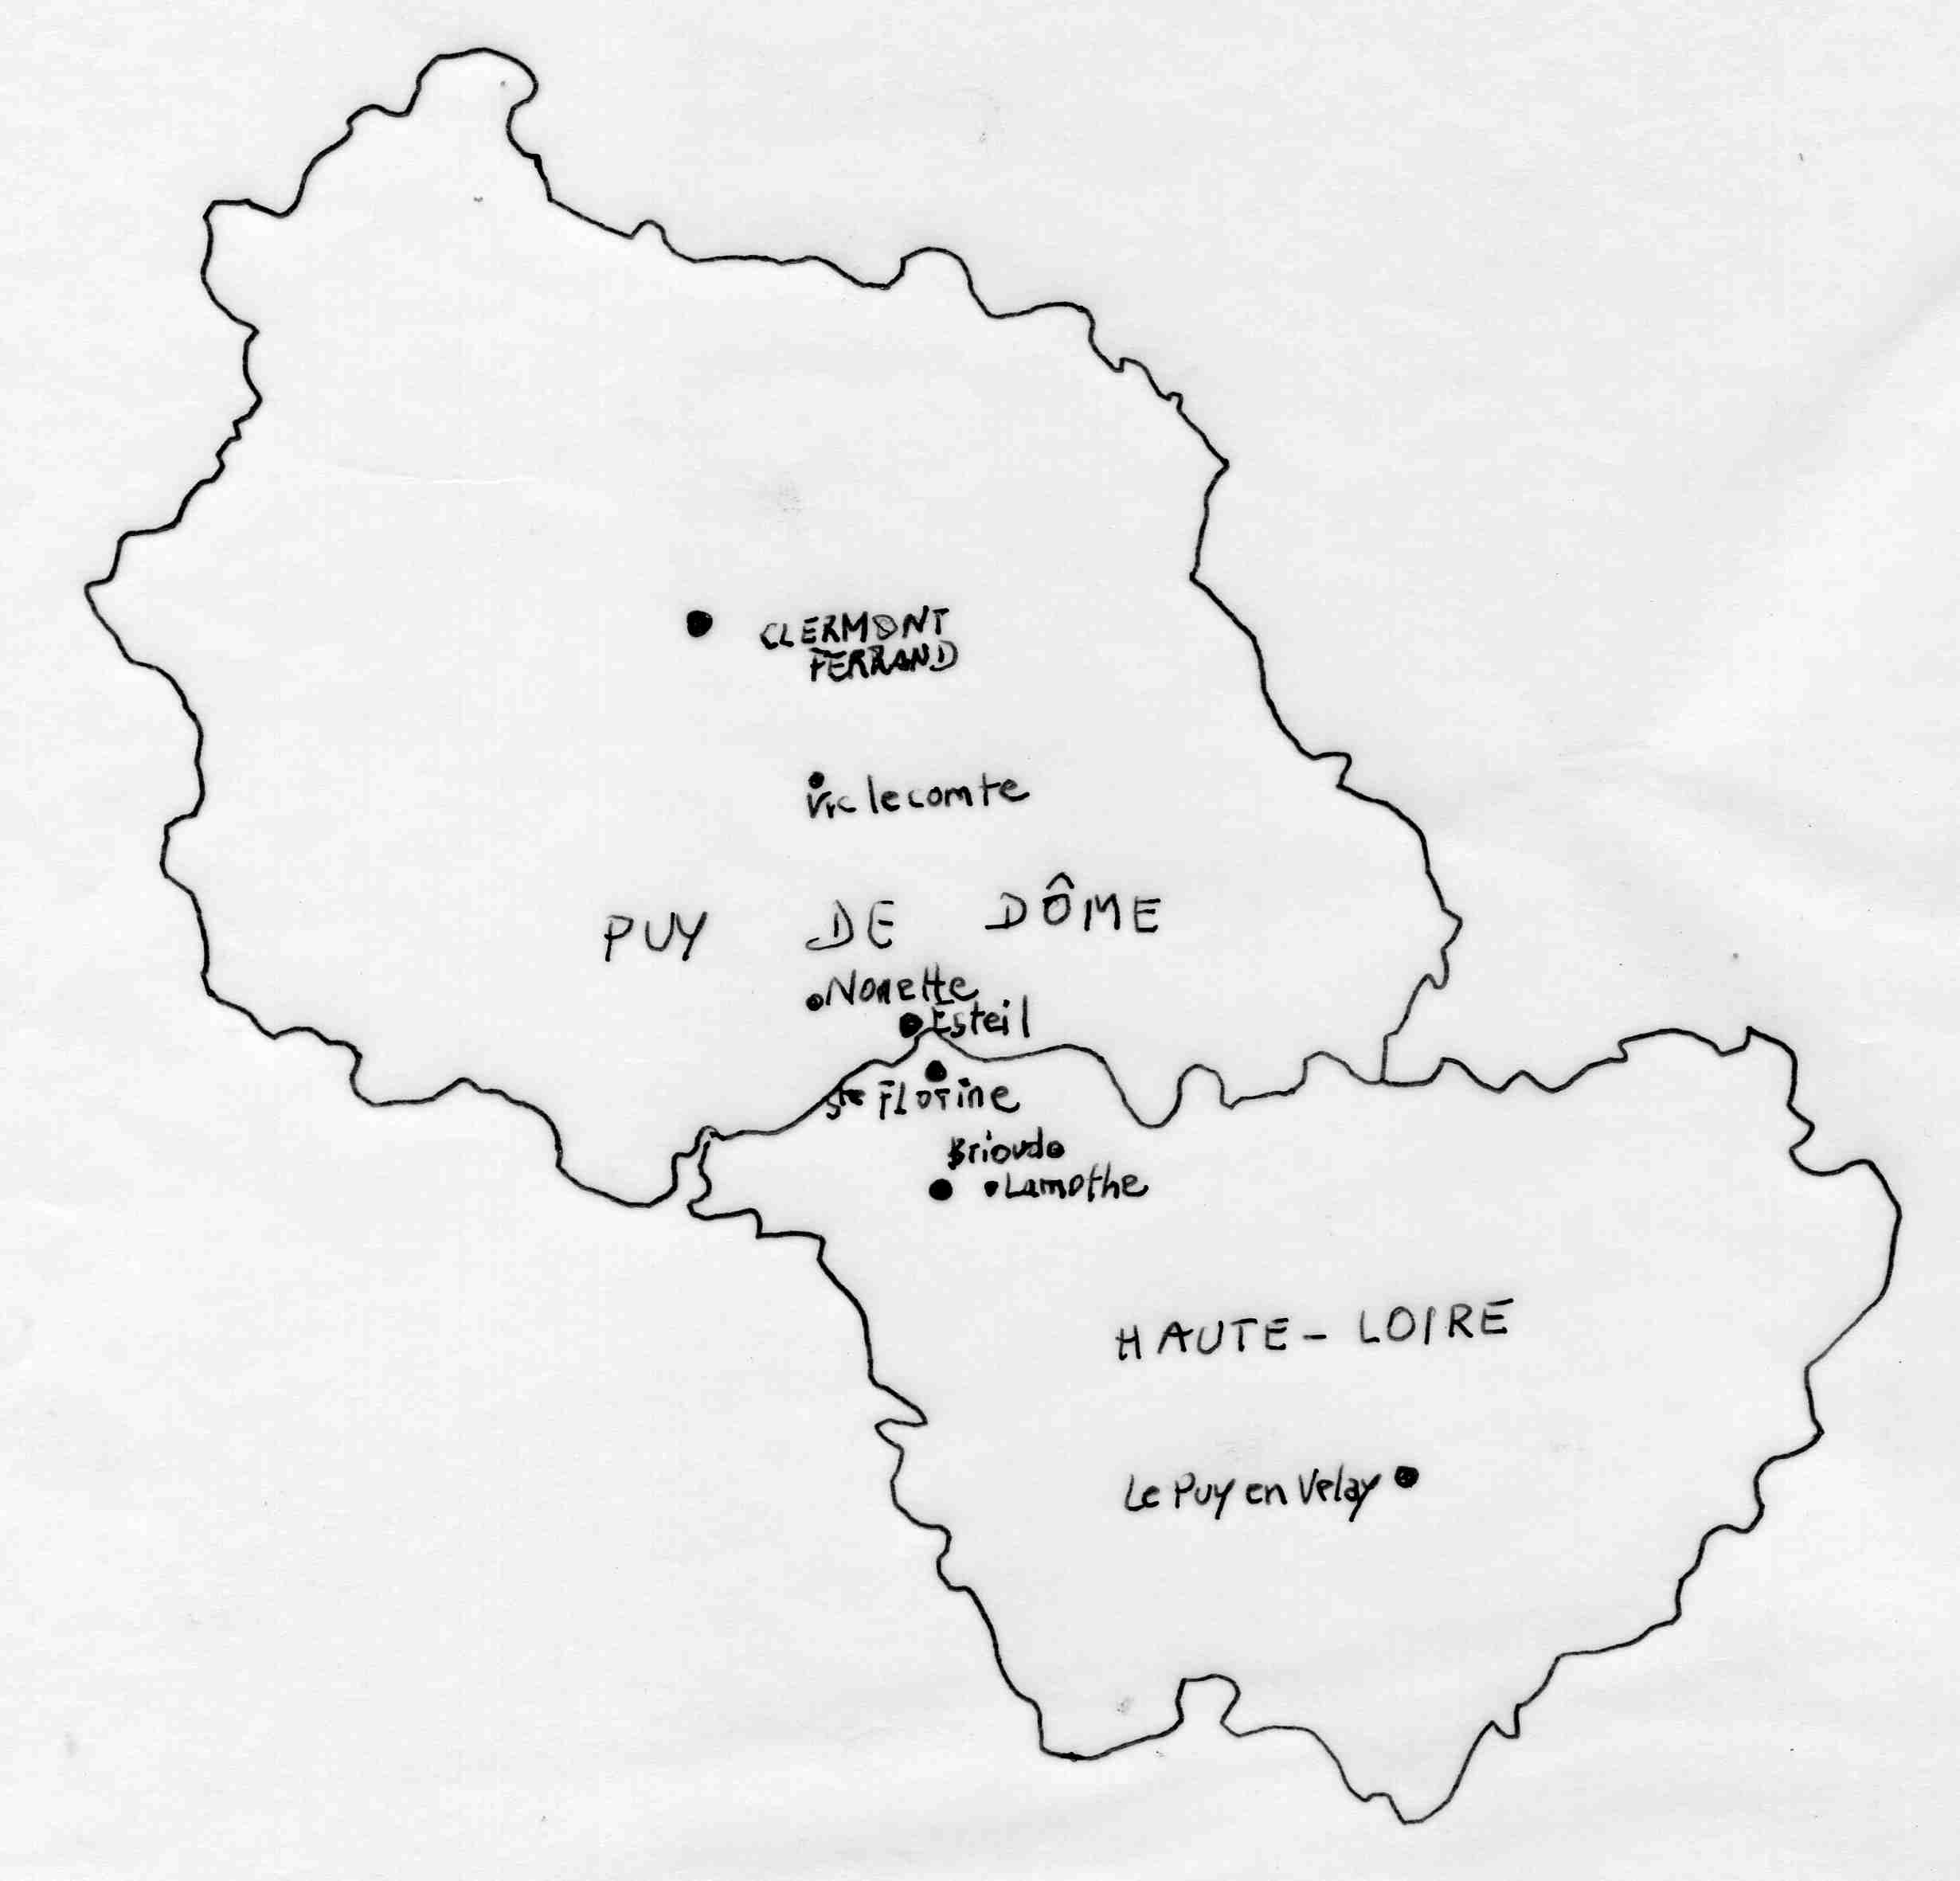 CLERMONT
FERRAND
Vic le comte
PUY DE DÔME
Nonette
Esteil
Ste Florine
Brioude
Lamothe
HAUTE-LOIRE
Le Puy en Velay